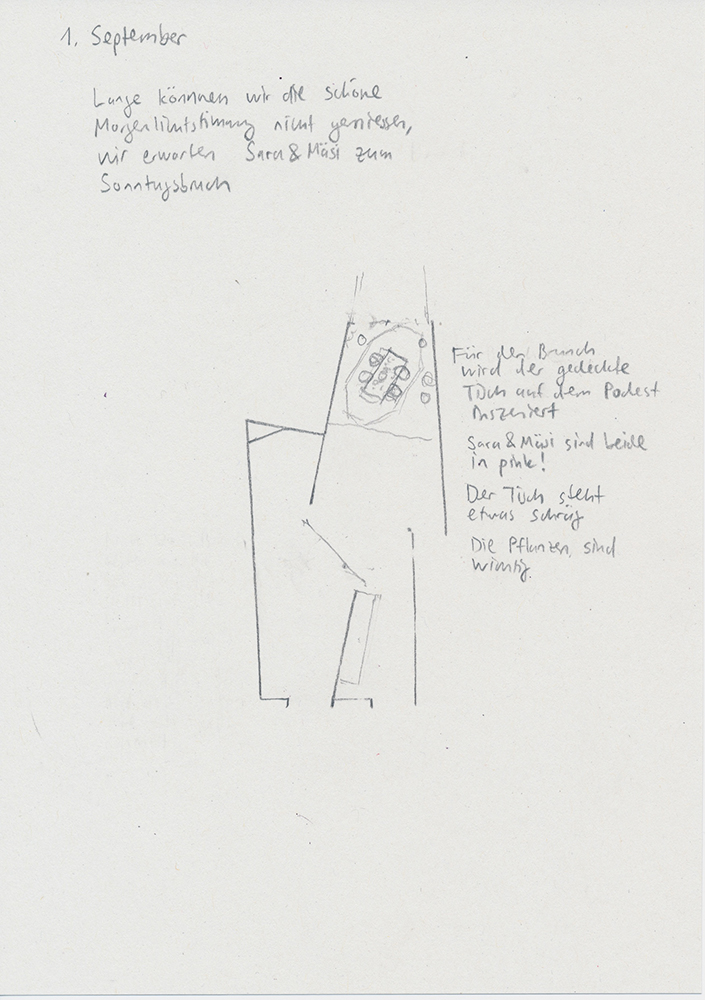 1. September
Lange können wir die schöne
Morgenlichtstimmung nicht geniessen,
wir erwarten Sara & Mäsi zum
Sonntagsbruch
Für den Brunch
wird der gedeckte
Tisch auf dem Podest
inszeniert
Sara & Mäsi sind beide
in pink!
Der Tisch steht
etwas schräg
Die Pflanzen sind
wichtig.